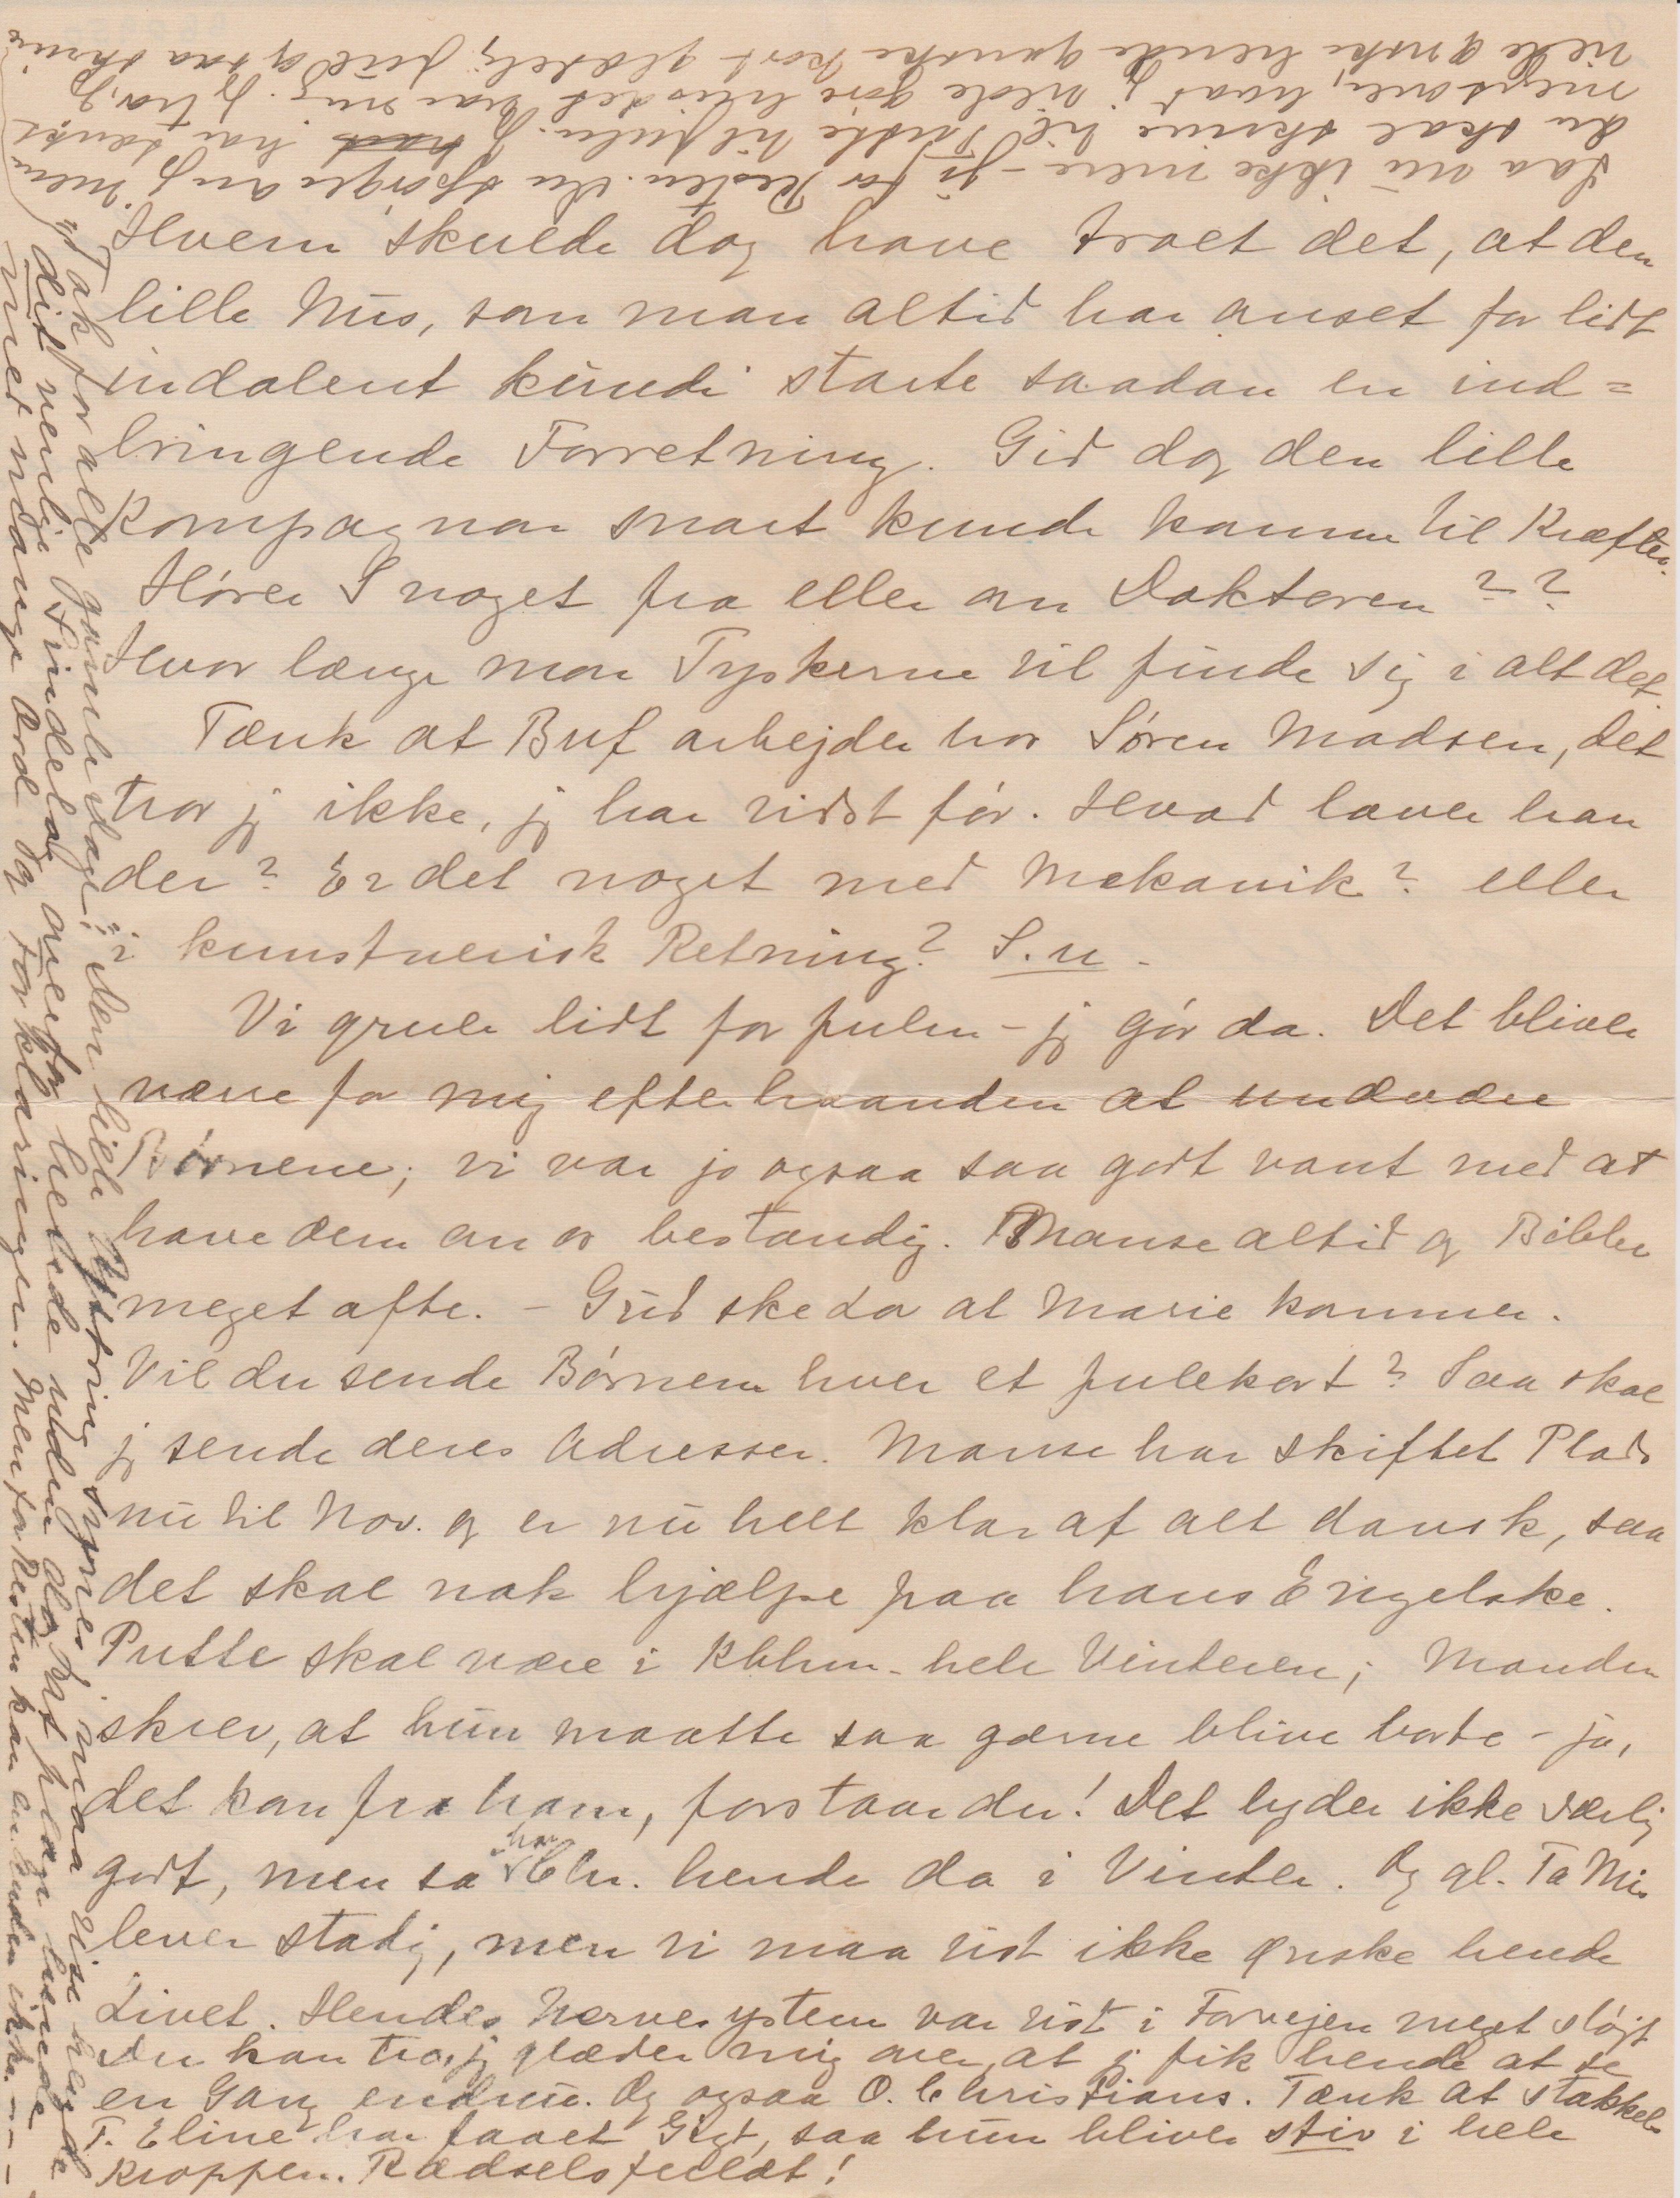 Hvem skulde dog have troet det, at den
lille Nus, som man altid har anset for lidt
indolent kunde starte saadan en ind=
bringende Forretning. Gid dog den lille
Kompagnon snart kunde komme til Kræfter.
Hører I noget fra eller om Doktoren??
Hvor længe mon Tyskerne vil finde sig i alt det.
Tænk at Buf arbejder hos Søren Madsen, det
tror jg ikke, jg har vidst før. Hvad laver han
der? Er det noget med Mekanik? eller
i kunstnerisk Retning? S.u.
Vi gruer lidt for Julen - jg gør da. Det bliver
værre for mig efterhaanden at undvære
Børnene; vi var jo ogsaa saa godt vant med at
have dem om os bestandig. Manse altid og Bibbe
meget ofte. - Gud ske Lov at Marie kommer.
Vil du sende Børnene hver et Julekort? Saa skal
jg sende deres Adresser. Manse har skiftet Plads
nu til Nov. og er nu helt klar af alt dansk, saa
det skal nok hjælpe paa hans Engelske.
Putte skal være i Kbhvn. hele Vinteren; Manden
skrev, at hun maatte saa gærne blive borte - ja,
det kan fra ham, forstaar du! Det lyder ikke særlig
godt, men saa har Chr. hende da i Vinter. Og gl. Ta Mis
lever stadig, men vi maa vist ikke ønske hende
Livet. Hendes Nervesystem var vist i Forvejen meget sløjt
Du kan tro, jg glæder mig over, at jg fik hende at se
en Gang endnu. Og ogsaa O. Christians. Tænk at stakkels
T. Eline har faaet Gigt, saa hun bliver stiv i hele
Kroppen. Rædselsfuldt!
Saa nu ikke mere - jo for Resten. Du spørger om jg mener
du skal skrive til Putte til Julen. Jg har tænkt
meget over, hvad jg vilde gøre hvis det var mig. Jg tror, jg
vilde ønske hende ganske kort glædelig Jul og saa skrive
"Tak for alle gamle Dage". Den lille Ytring synes jg maa vise hende
dit venlige Sindelag overfor hende uden dog at plage hende
med mange Ord og Forklaringer. Men for Resten kan